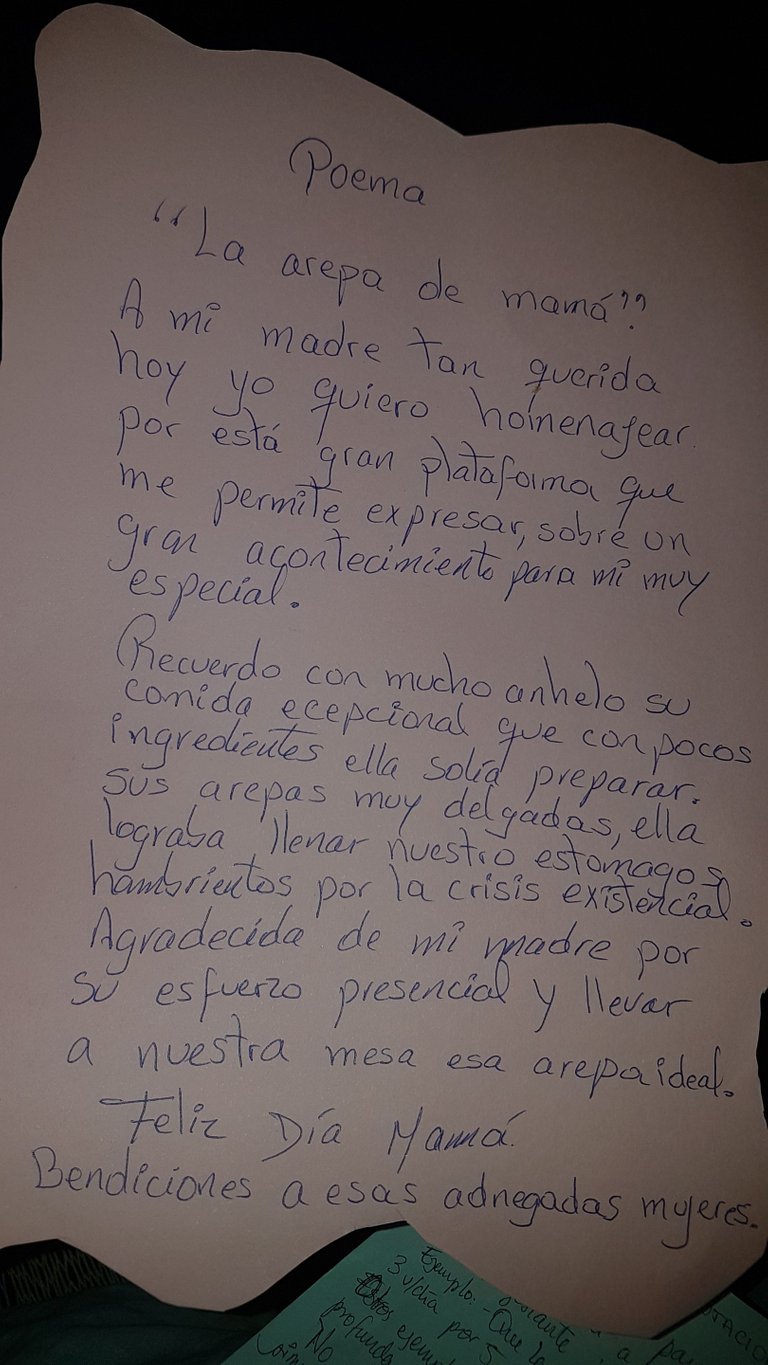 Poema
“La arepa de mamá”
A mi madre tan querida
hoy yo quiero homenajear.
por está gran plataforma que
me permite expresar, sobre un
gran acontecimiento para mi muy
especial.
Recuerdo con mucho anhelo su
comida ecepcional que con pocos
ingredientes ella solía preparar.
Sus arepas muy delgadas, ella
lograba llenar nuestro estomagos
hambrientos por la crisis existencial.
Agradecida de mi madre por
su esfuerzo presencial y llevar
a nuestra mesa esa arepa ideal.
Feliz Día Mamá.
Bendiciones a esas adnegadas mujeres.
Ejemplo: - Que la
3 v/día por 5
profunda
No